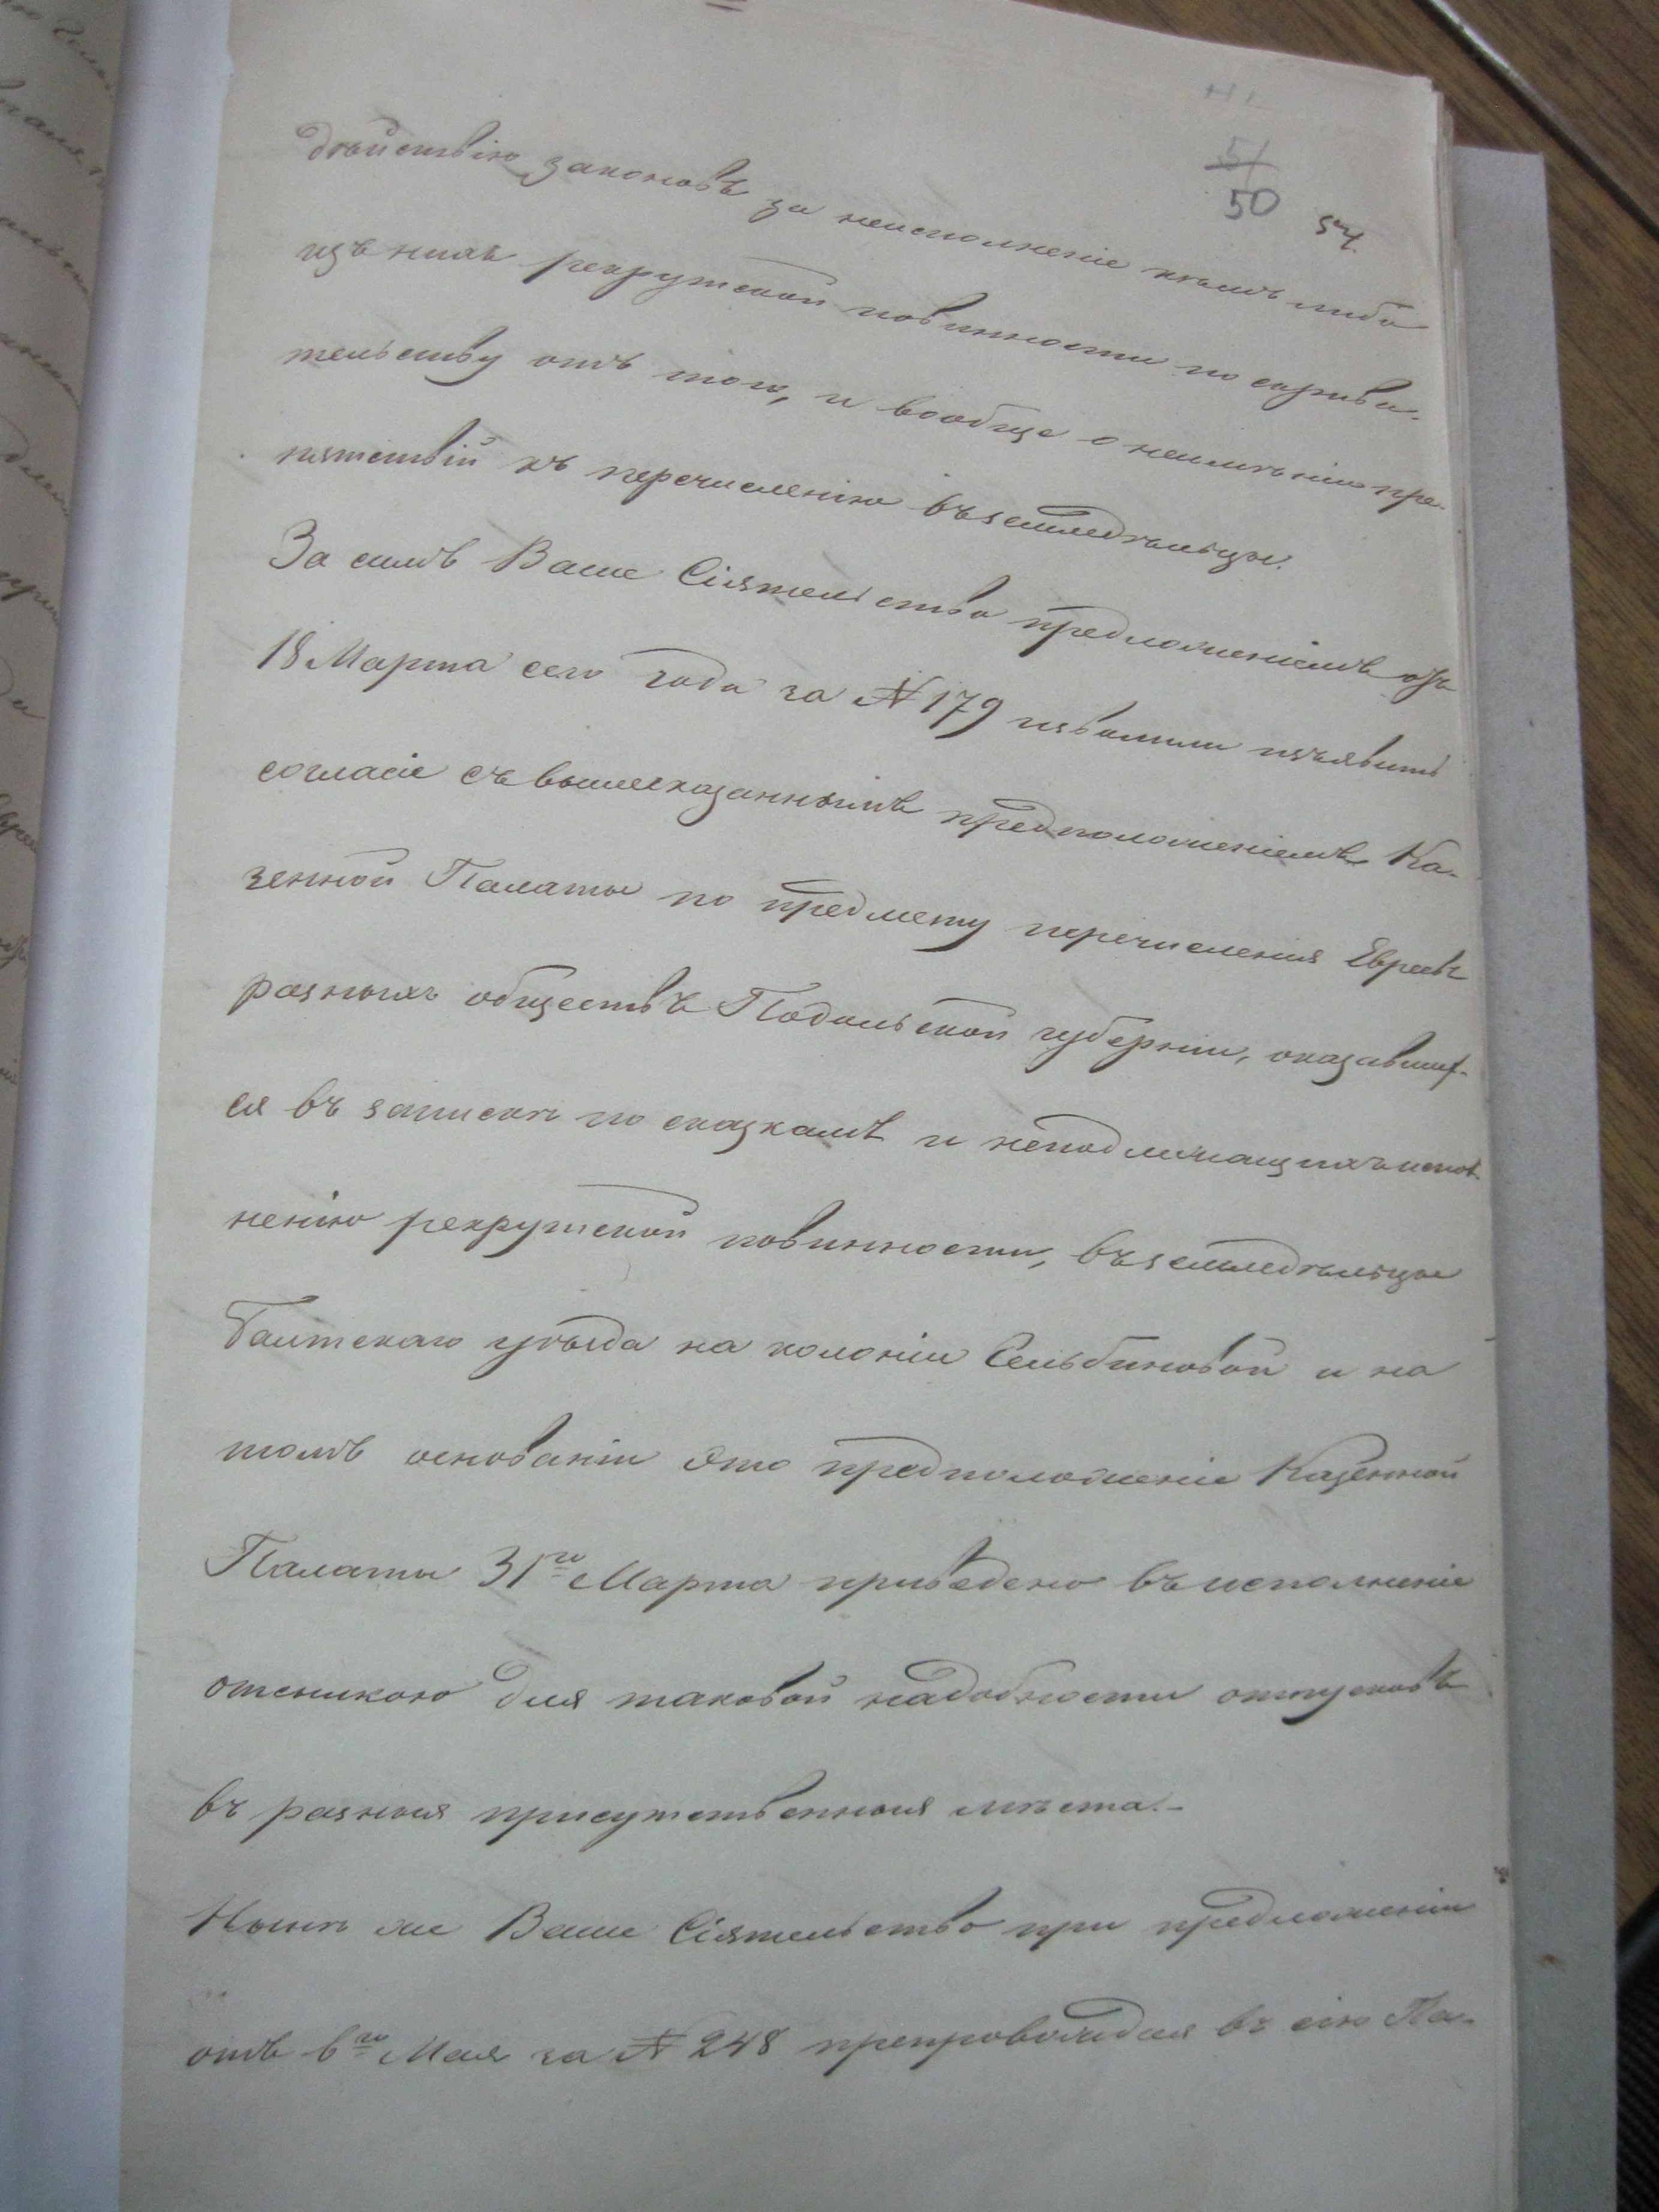 51
50 54.
дѣйствію законовъ за неисполненіе кѣмъ либо
изъ нихъ рекрутской повинности по укрыва-
тельству отъ того, и вообще о неимѣніи пре-
пятствій къ перечисленію въ земледѣльцы.
За симъ Ваше Сіятельство предложеніемъ отъ
18 Марта сего года за № 179 изволили изъявить
согласіе съ вышесказаннымъ предположеніемъ Ка-
зенной Палаты по предмету перечисленія Евреевъ
разныхъ обществъ Подольской губерніи, оказавших-
ся въ запискѣ по сказкамъ и неподлежащихъ испол-
ненію рекрутской повинности, въ земледѣльцы
Балтскаго уѣзда на колоніи Сельбиновой и на
томъ основаніи это предположеніе Казенной
Палаты 31го Марта приведено въ исполненіе
отсылкою для таковой надобности отпусковъ
въ разныя присутственныя мѣста.-
Нынѣ же Ваше Сіятельство при предложеніи
отъ 6го Мая за № 248 препровождая въ сію Па-